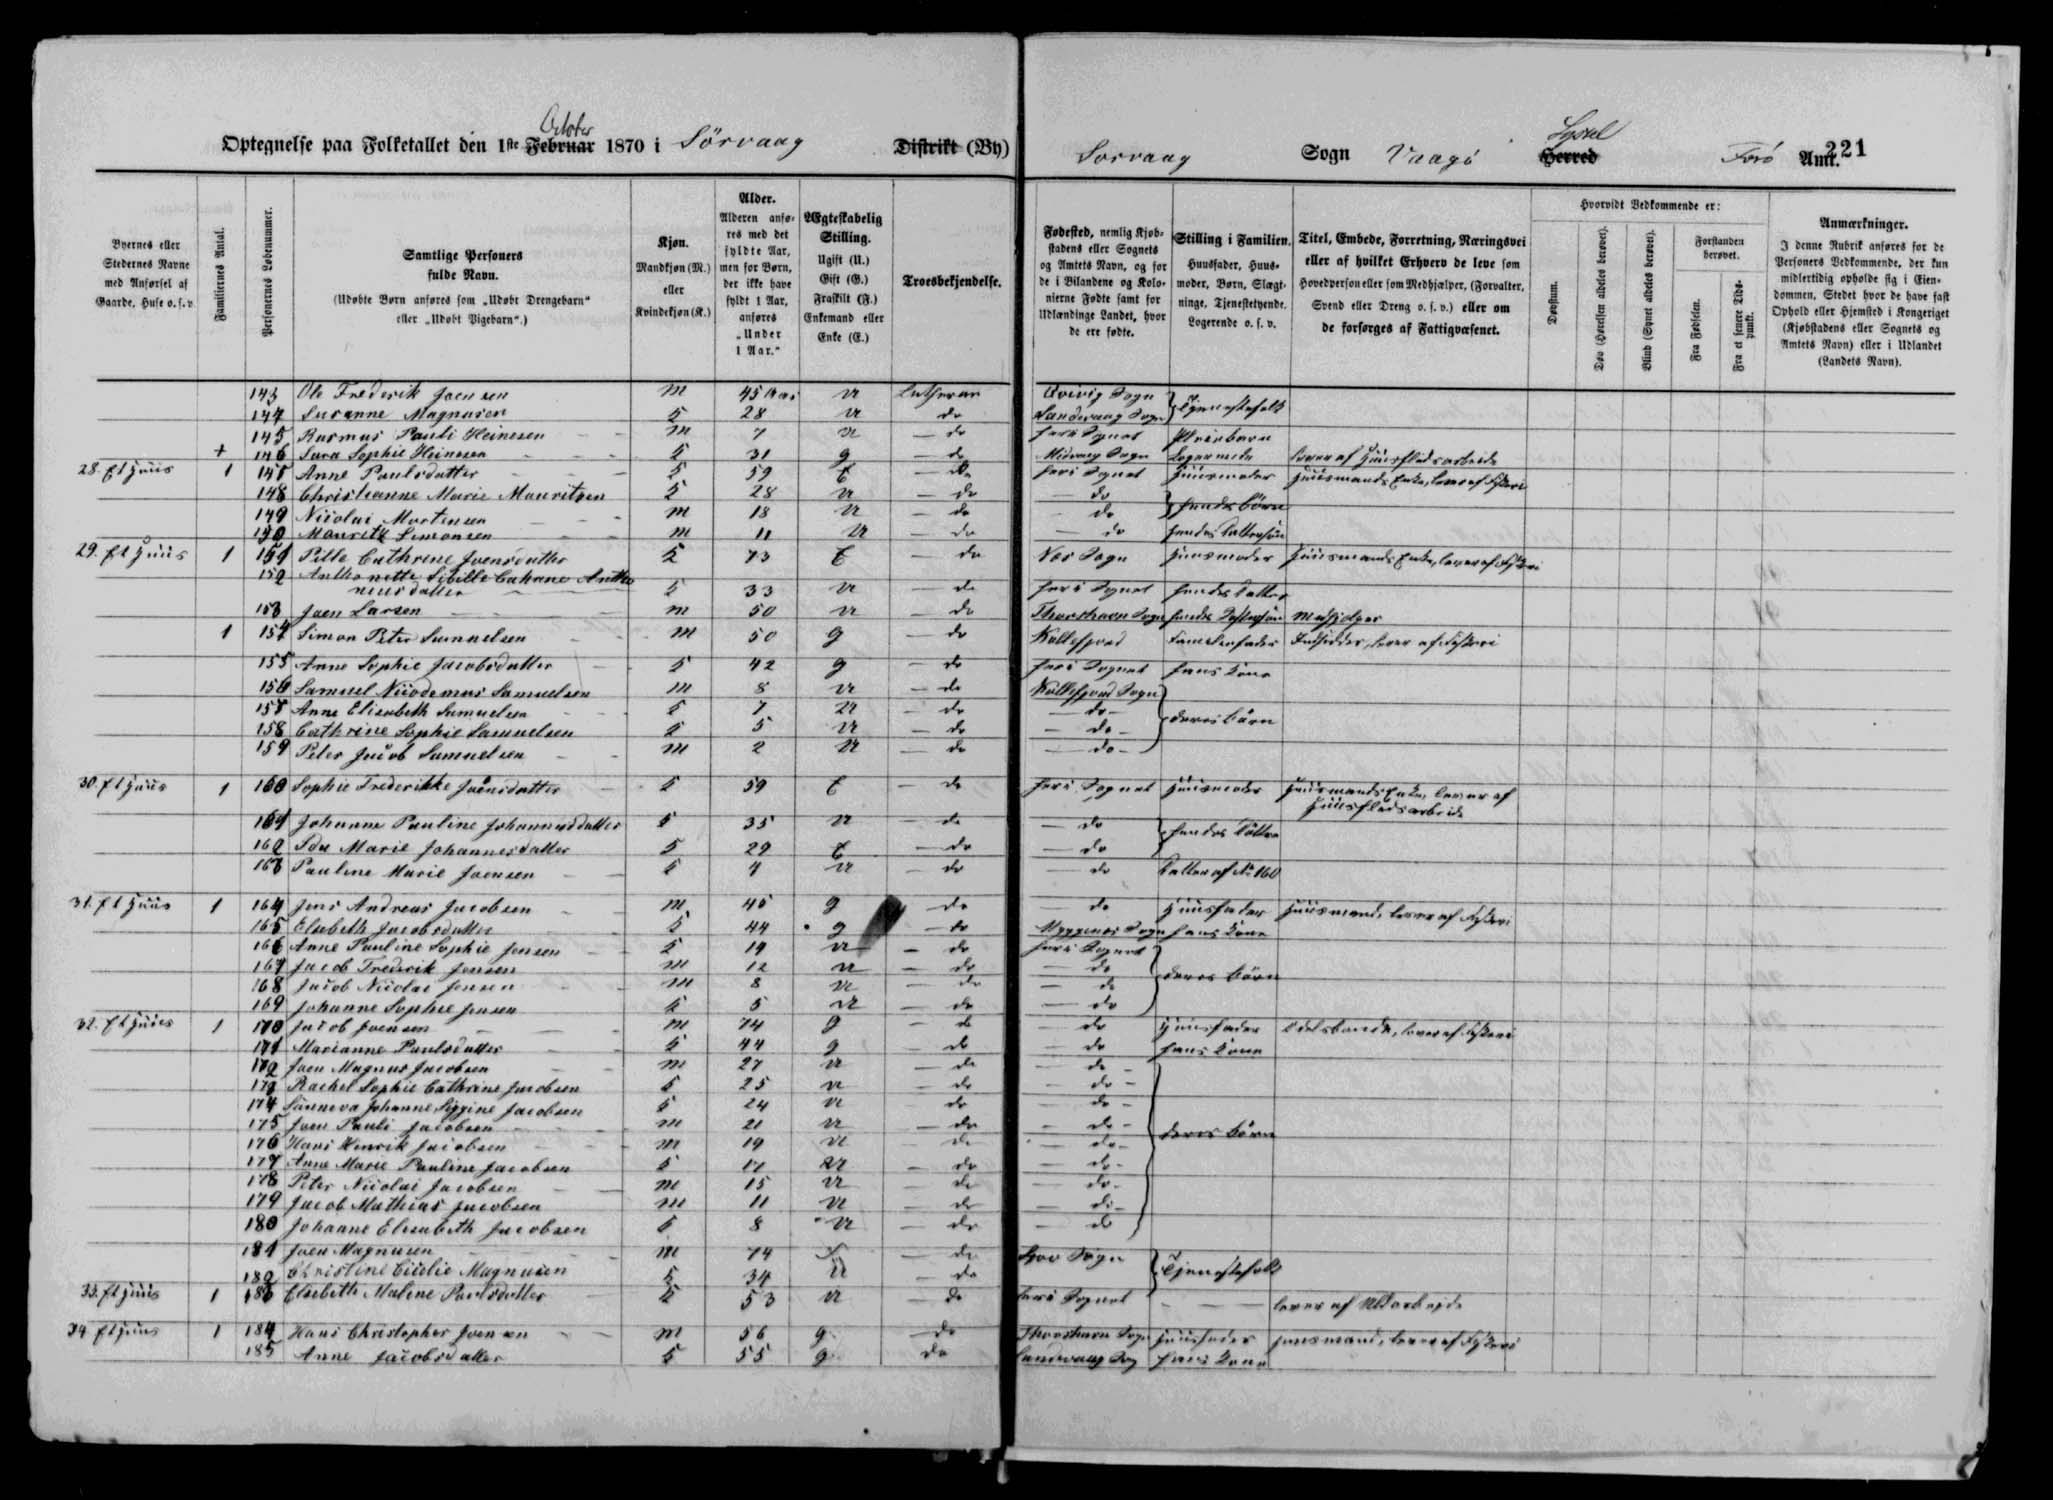 Optegnelse paa Folketallet den 1ste Februar October 1870 i Sörvaag Distrikt (By)
Sorvaag Sogn Vaagö Herred Syssel Forö Amt. 221
Byernes eller Stedernes Navne med Anførsel af Gaarde, Huse o. s. v.
Familiernes Antal.
Personernes Løbenummer.
Samtlige Personers fulde Navn.
(Udøbte Børn anføres som „Udøbt Drengebarn" eller „Udøbt Pigebarn".)
Kjøn.
Mandkjøn (M.) eller Kvindekjøn (K.)
Alder.
Alderen anføres med det fyldte Aar, men for Børn, der ikke have fyldt 1 Aar, anføres „Under 1 Aar."
Ægteskabelig Stilling.
Ugift (U.) Gift (G.) Fraskilt (F.) Enkemand eller Enke (E.)
Troesbekjendelse.
Fødested, nemlig Kjøbstadens eller Sognets og Amtets Navn, og for de i Bilandene og Kolonierne Fødte samt for Udlændinge Landet, hvor de ere fødte.
Stilling i Familien.
Huusfader, Huusmoder, Børn, Slægtninge, Tjenestetyende, Logerende o. s. v.
Titel, Embede, Forretning, Næringsvei eller af hvilket Erhverv de leve som Hovedperson eller som Medhjælper, (Forvalter, Svend eller Dreng o. s. v.) eller om de forsørges af Fattigvæsenet.
Hvorvidt Vedkommende er:
Døvstum.
Døv (Hørelsen aldeles berøvet).
Blind (Synet aldeles berøvet).
Forstanden berøvet.
Fra Fødselen.
Fra et senere Tidspunkt.
Anmærkninger.
I denne Rubrik anføres for de Personers Vedkommende, der kun midlertidig opholde sig i Eiendommen, Stedet hvor de have fast Ophold eller Hjemsted i Kongeriget (Kjøbstadens eller Sognets og Amtets Navn) eller i Udlandet (Landets Navn).
143 Ole Frederik Joensen M 45 Aar U Lutheran Sogn
144 Susanne Magnusen K 28 U do Sandevaag Sogn Tjenestefolk
145 Rasmus Pauli Heinesen M 7 U do her i Sognet Pleiebarn
+ 146 Sara Sophie Heinesen K 31 G do Midvaag Sogn lever af Huusflidsarbeide
28. Et Huus 1 147 Anne Paulsdatter K 59 E do her i Sognet Huusmoder Huusmands Enke, lever af Fiskeri
148 Christianne Marie Mauritzen K 28 U do do
149 Nicolai Mortensen M 18 U do do hendes Börn
150 Mauritz Simonsen M 11 U do do hendes Dattersön
29. Et Huus 1 151 Pille Cathrine Joensdatter K 73 E do Næs Sogn Huusmoder Huusmands Enke, lever af Fiskeri
152 Anthonette Sibille Cahane Anthoniusdatter K 33 U do her i Sognet hendes Datter
153 Joen Larsen M 50 U do Thorshavn Sogn hendes Medhjelper
1 154 Simon Peter Samuelsen M 50 G do Kollefjord Familiefader Indsidder, lever af Fiskeri
155 Anne Sophie Jacobsdatter K 42 G do her i Sognet hans Kone
156 Samuel Nicodemus Samuelsen M 8 U do Kollefjord Sogn
157 Anne Elisabeth Samuelsen K 7 U do do
158 Cathrine Sophie Samuelsen K 5 U do do deres Börn
159 Peter Jacob Samuelsen M 2 U do do
30. Et Huus 1 160 Sophie Frederikke Joensdatter K 59 E do her i Sognet Huusmoder Huusmands Enke, lever af Huusflidsarbeide
161 Johanne Pauline Johannesdatter K 35 U do do
162 Ida Marie Johannesdatter K 29 E do do hendes Döttre
163 Pauline Marie Joensen K 4 U do do Datter af No 160
31. Et Huus 1 164 Jens Andreas Jacobsen M 45 G do do Huusfader Huusmand, lever af Fiskeri
165 Elsebeth Jacobsdatter K 44 G do Myggenæs Sogn hans Kone
166 Anne Pauline Sophie Jensen K 14 U do her i Sognet
167 Jacob Frederik Jensen M 12 U do do
168 Jacob Nicolai Jensen M 8 U do do deres Börn
169 Johanne Sophie Jensen K 5 U do do
32. Et Huus 1 170 Jacob Joensen M 74 G do do Huusfader Odelsbonde, lever af Fiskeri
171 Marianne Paulsdatter K 44 G do do hans Kone
172 Joen Magnus Jacobsen M 27 U do do
173 Rachel Sophie Cathrine Jacobsen K 25 U do do
174 Sünneva Johanne Siggine Jacobsen K 24 U do do
175 Joen Pauli Jacobsen M 21 U do do
176 Hans Henrik Jacobsen M 19 U do do deres Börn
177 Anne Marie Pauline Jacobsen K 17 U do do
178 Peter Nicolai Jacobsen M 15 U do do
179 Jacob Mathias Jacobsen M 11 U do do
180 Johanne Elisabeth Jacobsen K 8 U do do
181 Joen Magnusen M 74 do Sogn
182 Christine Cicilie Magnusen K 34 U do Tjenestefolk
33. Et Huus 1 183 Elsebeth Malene Paulsdatter K 53 U do her i Sognet lever af Uldarbeide
34 Et Huus 1 184 Hans Christopher Joensen M 56 G do Thorshavn Sogn Huusfader Huusmand, lever af Fiskeri
185 Anne Jacobsdatter K 55 G do Sandevaag Sog hans Kone